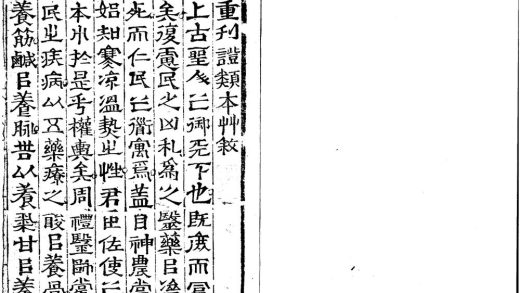 重刊證類本艸敘
上古聖人之御天下也既庶而富
矣復慮民之凶札爲之毉藥㠯濟
死而仁民之術寓焉蓋自神農嘗
始知寒涼溫熱之性君臣佐使之
本艸於是乎權輿矣周禮毉師掌
民之疾病以五藥療之酸㠯養骨
養筋鹹㠯養脉苦以養氣甘㠯養